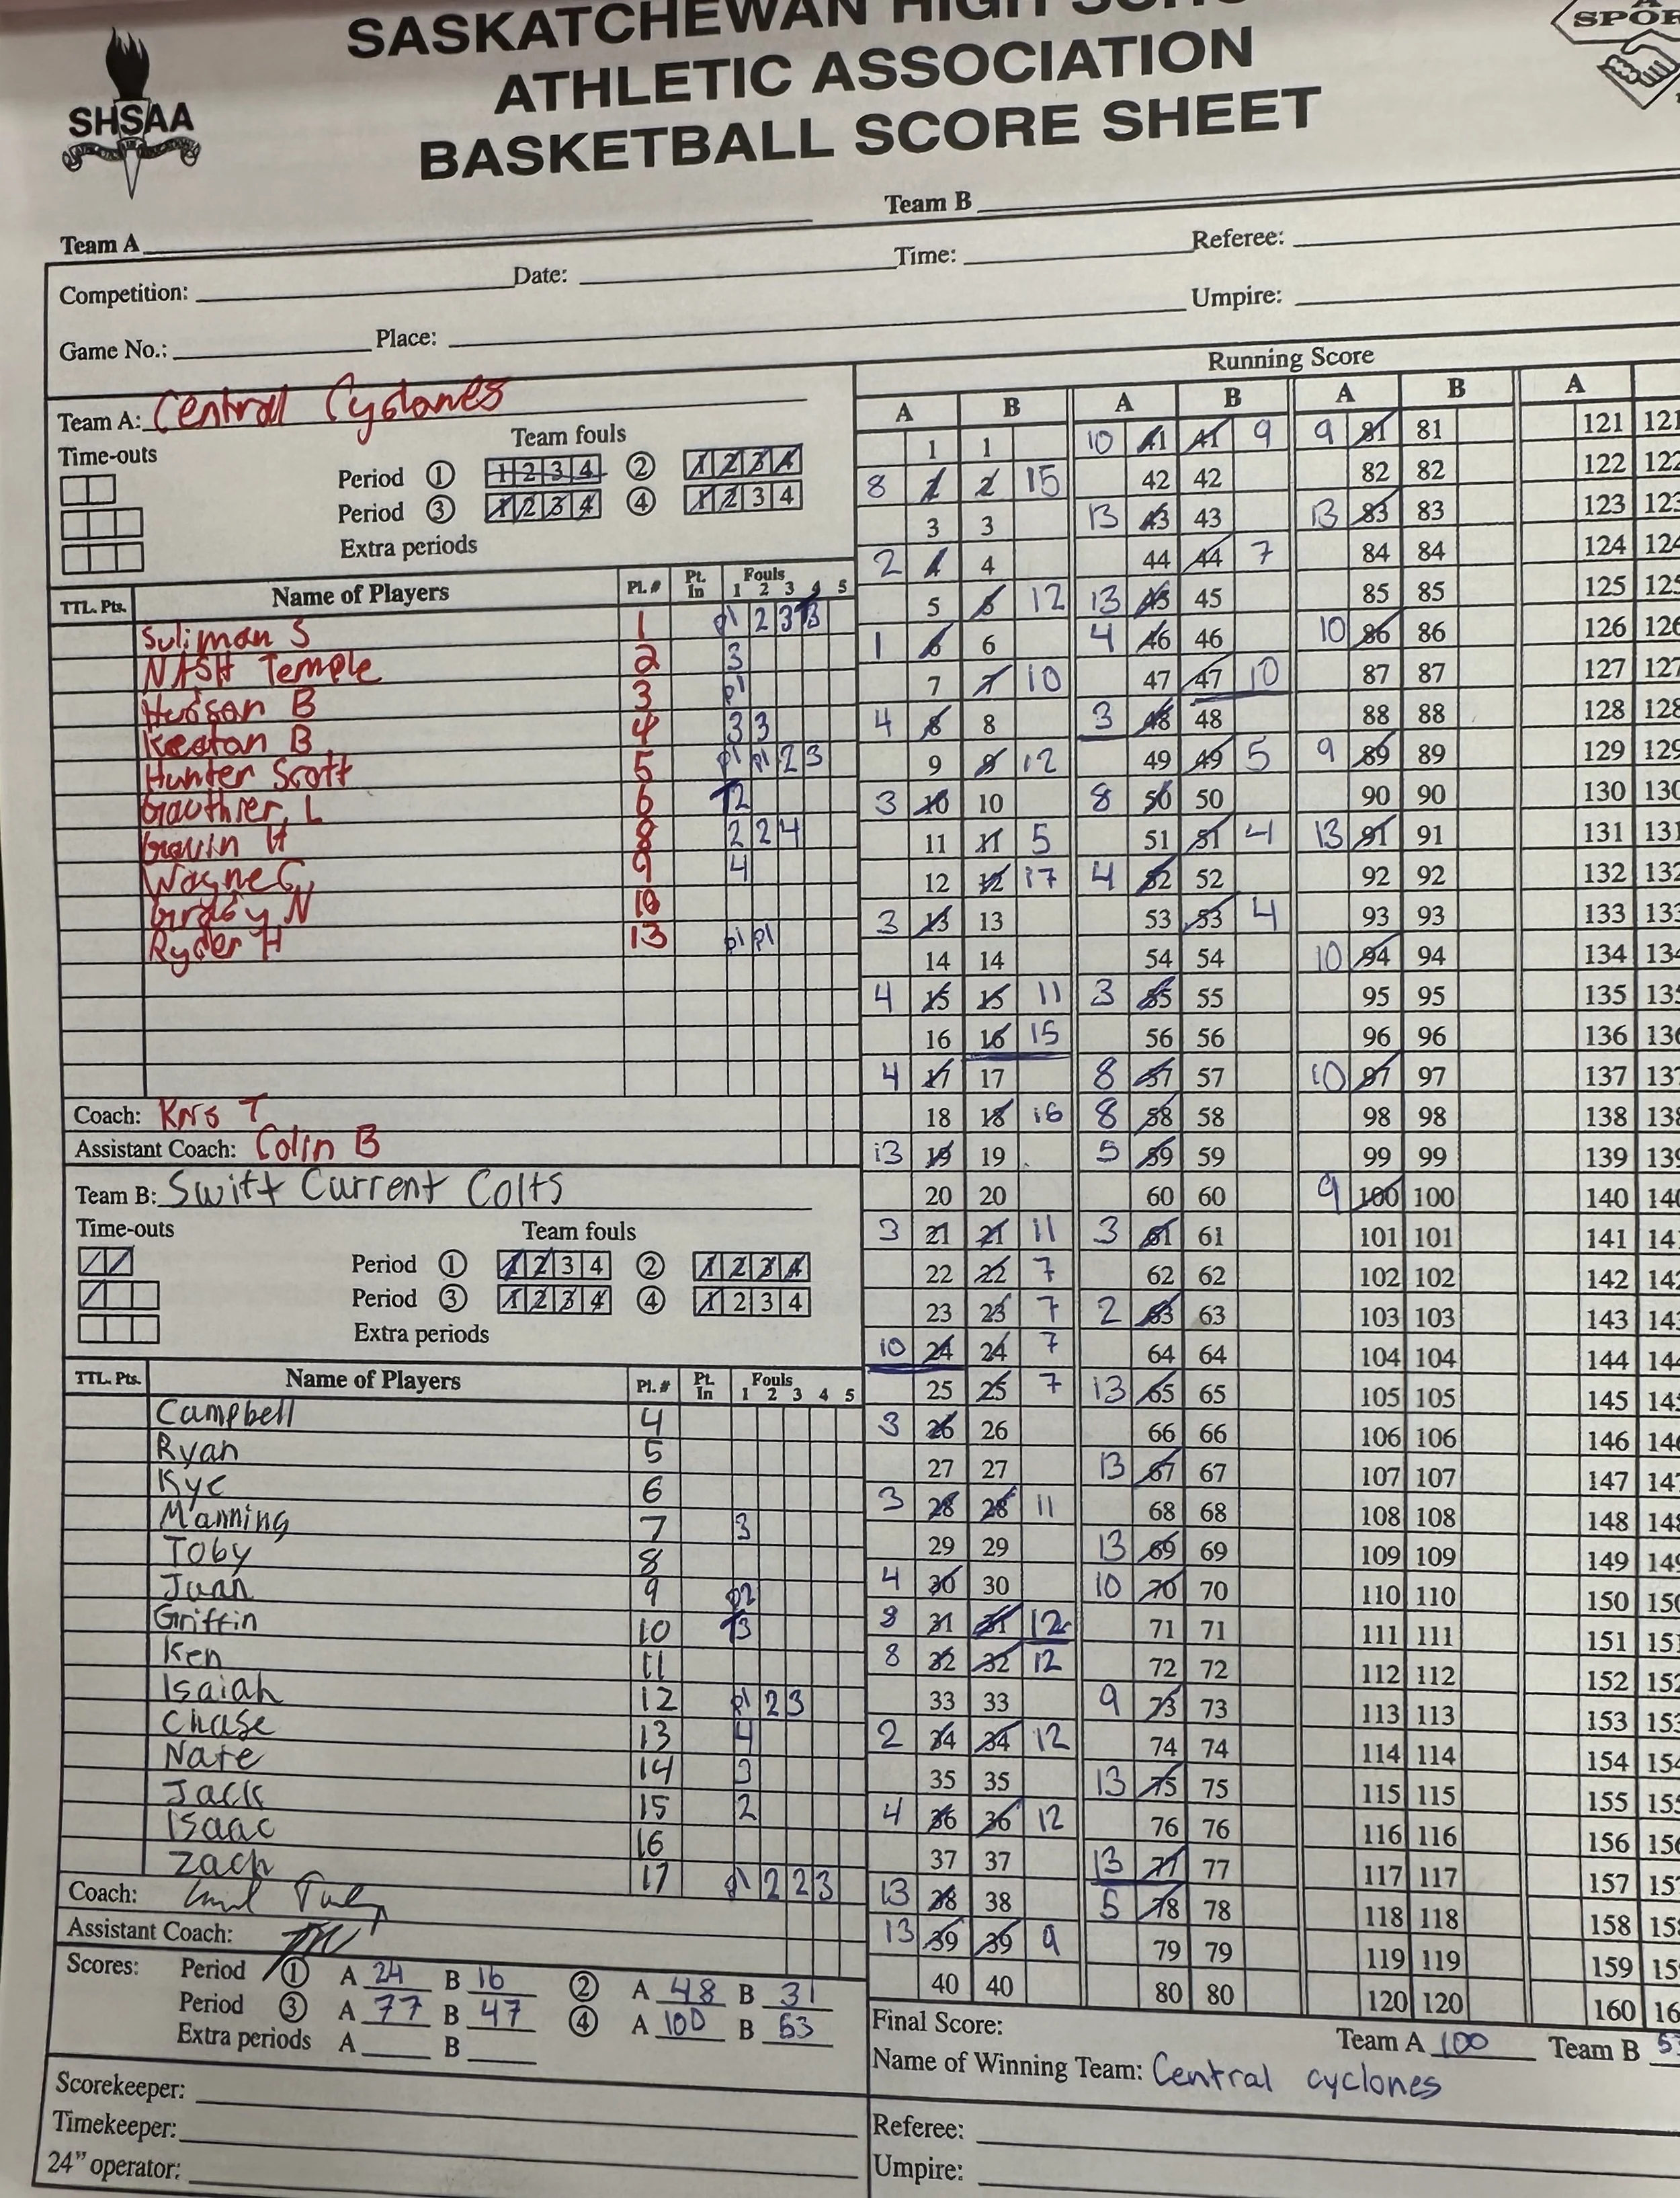 SASKATCHEWAN HIGH SCHO
ATHLETIC ASSOCIATION
BASKETBALL SCORE SHEET
SHSAA
SPOR
Team A
Team B
Competition:
Date:
Time:
Referee:
Game No.:
Place:
Umpire:
Team A: Central Cyclones
Time-outs
Team fouls
Period ① 1 2 3 4 ② 1 2 3 4
Period ③ 1 2 3 4 ④ 1 2 3 4
Extra periods
TTL. Pts. Name of Players Pl. # Pt. In Fouls 1 2 3 4 5
Suliman S 1 p1 2 3 3
NASH Temple 2 3
Hudson B 3 p1
Keatan B 4 3 3
Hunter Scott 5 p1 p1 2 3
Gauthier, L 6 2
Gavin H 8 2 2 4
Wayne C 9 4
N 10
Ryder H 13 p1 p1
Coach: T
Assistant Coach: Colin B
Team B: Swift Current Colts
Time-outs
Team fouls
Period ① 1 2 3 4 ② 1 2 3 4
Period ③ 1 2 3 4 ④ 1 2 3 4
Extra periods
TTL. Pts. Name of Players Pl. # Pt. In Fouls 1 2 3 4 5
Campbell 4
Ryan 5
Kye 6
Manning 7 3
Toby 8
Juan 9 p2
Griffin 10 3
Ken 11
Isaiah 12 p1 2 3
Chase 13 4
Nate 14 3
Jack 15 2
Isaac 16
Zach 17 p1 2 2 3
Coach:
Assistant Coach:
Scores: Period ① A 24 B 16 ② A 48 B 31
Period ③ A 77 B 47 ④ A 100 B 53
Extra periods A B
Scorekeeper:
Timekeeper:
24" operator:
Running Score
A B A B A B A
1 1 10 41 41 9 9 81 81 121 121
8 2 2 15 42 42 82 82 122 122
3 3 13 43 43 13 83 83 123 123
2 4 4 44 44 7 84 84 124 124
5 5 12 13 45 45 85 85 125 125
1 6 6 4 46 46 10 86 86 126 126
7 7 10 47 47 10 87 87 127 127
4 8 8 3 48 48 88 88 128 128
9 9 12 49 49 5 9 89 89 129 129
3 10 10 8 50 50 90 90 130 130
11 11 5 51 51 4 13 91 91 131 131
12 12 17 4 52 52 92 92 132 132
3 13 13 53 53 4 93 93 133 133
14 14 54 54 10 94 94 134 134
4 15 15 11 3 55 55 95 95 135 135
16 16 15 56 56 96 96 136 136
4 17 17 8 57 57 10 97 97 137 137
18 18 16 8 58 58 98 98 138 138
13 19 19 5 59 59 99 99 139 139
20 20 60 60 9 100 100 140 140
3 21 21 11 3 61 61 101 101 141 14
22 22 7 62 62 102 102 142 14
23 23 7 2 63 63 103 103 143 14
10 24 24 7 64 64 104 104 144 14
25 25 7 13 65 65 105 105 145 14
3 26 26 66 66 106 106 146 14
27 27 13 67 67 107 107 147 14
3 28 28 11 68 68 108 108 148 14
29 29 13 69 69 109 109 149 14
4 30 30 10 70 70 110 110 150 15
8 31 31 12 71 71 111 111 151 15
8 32 32 12 72 72 112 112 152 15
33 33 9 73 73 113 113 153 15
2 34 34 12 74 74 114 114 154 15
35 35 13 75 75 115 115 155 15
4 36 36 12 76 76 116 116 156 15
37 37 13 77 77 117 117 157 15
13 38 38 5 78 78 118 118 158 15
13 39 39 9 79 79 119 119 159 15
40 40 80 80 120 120 160 16
Final Score: Team A 100 Team B 5
Name of Winning Team: Central cyclones
Referee:
Umpire: